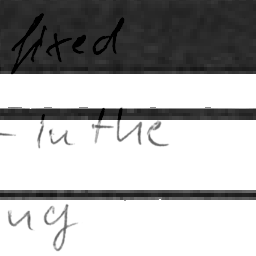 fixed
- in the
ng